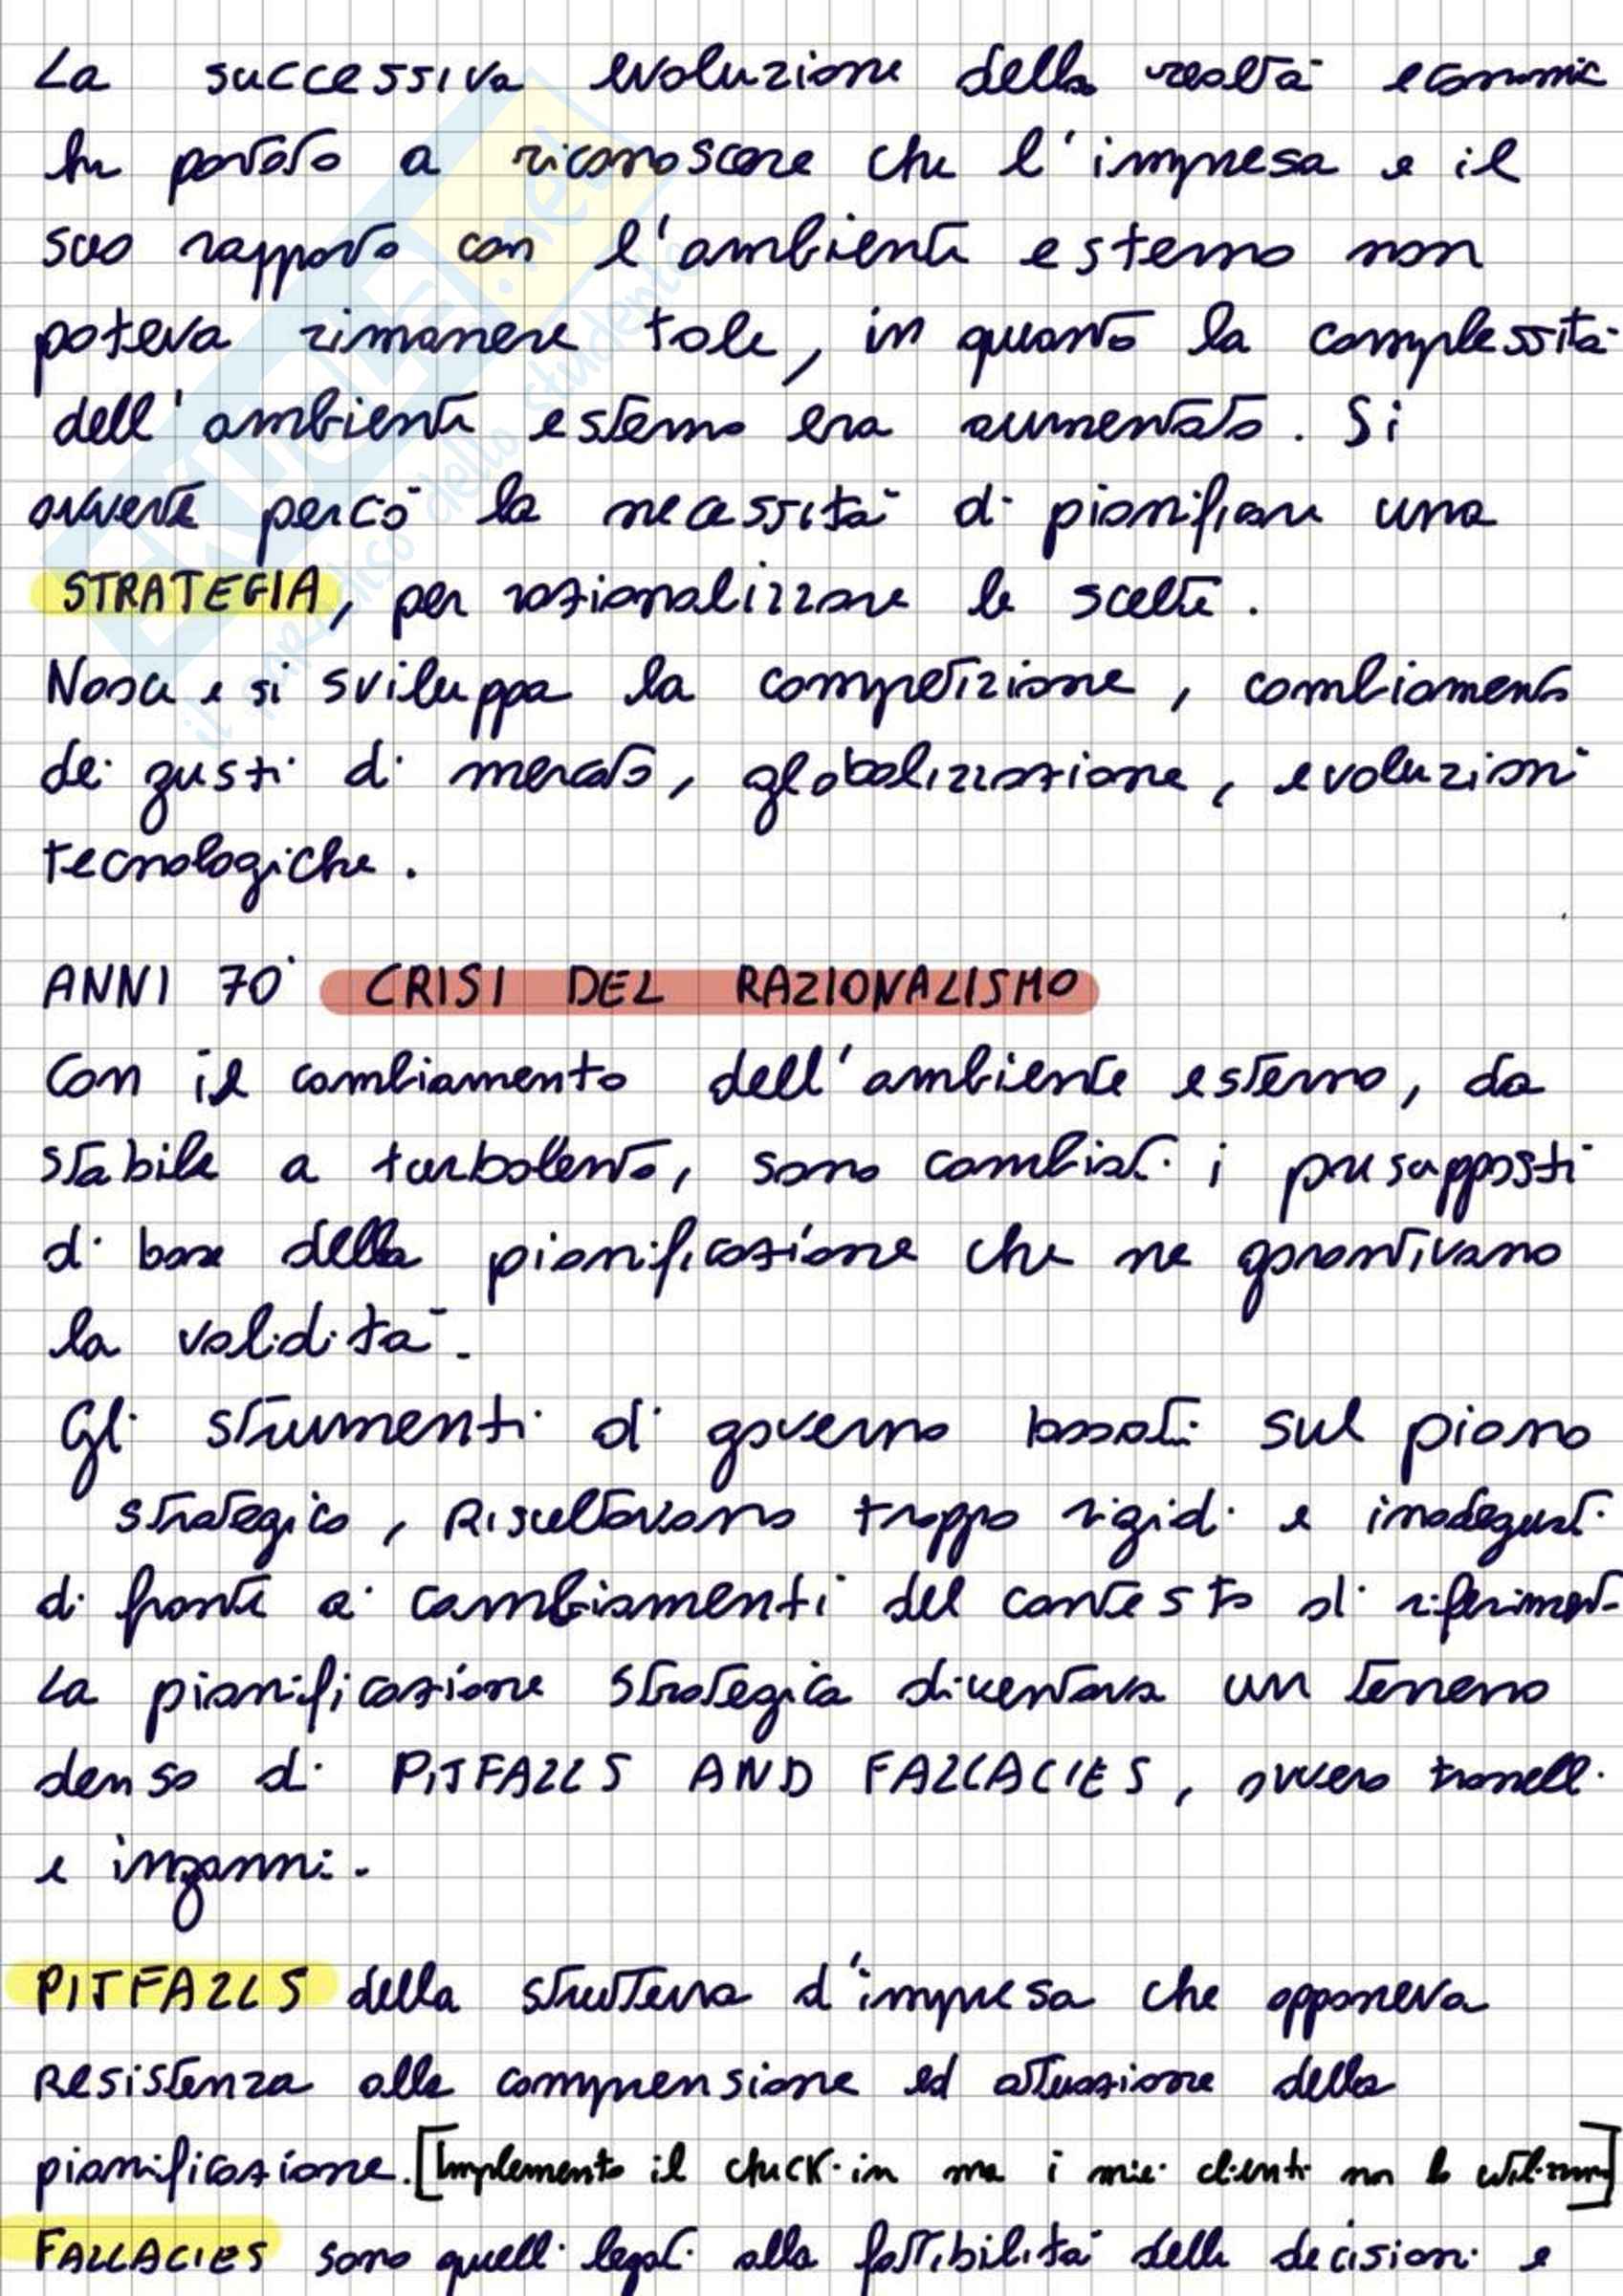 La successiva evoluzione della realtà economic
ha portato a riconoscere che l'impresa e il
suo rapporto con l'ambiente esterno non
poteva rimanere tale, in quanto la complessità
dell'ambiente esterno era aumentato. Si
avverte perciò la necessità di pianificare una
STRATEGIA, per razionalizzare le scelte.
Nasce e si sviluppa la competizione, cambiamento
dei gusti di mercato, globalizzazione, evoluzioni
tecnologiche.
ANNI 70' CRISI DEL RAZIONALISMO
Con il cambiamento dell'ambiente esterno, da
stabile a turbolento, sono cambiati i presupposti
di base della pianificazione che ne garantivano
la validità.
Gli strumenti di governo basati sul piano
strategico, Risultavano troppo rigidi e inadeguati
di fronte ai cambiamenti del contesto di riferiment
La pianificazione strategica diventava un terreno
denso di PITFALLS AND FALLACIES, ovvero tranelli
e inganni.
PITFALLS della struttura d'impresa che opponeva
Resistenza alla comprensione ed attuazione della
pianificazione. [Implemento il check-in ma i miei clienti non lo utilizzano]
FALLACIES sono quelli legati alla fattibilità delle decisioni e
SKUOLA.net
il paradiso dello studente